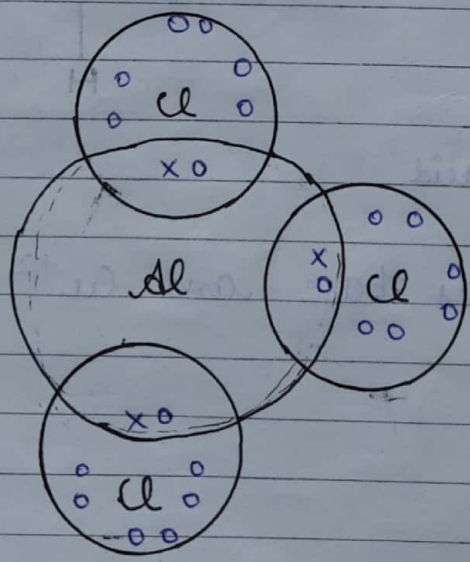 Cl
Al
Cl
Cl